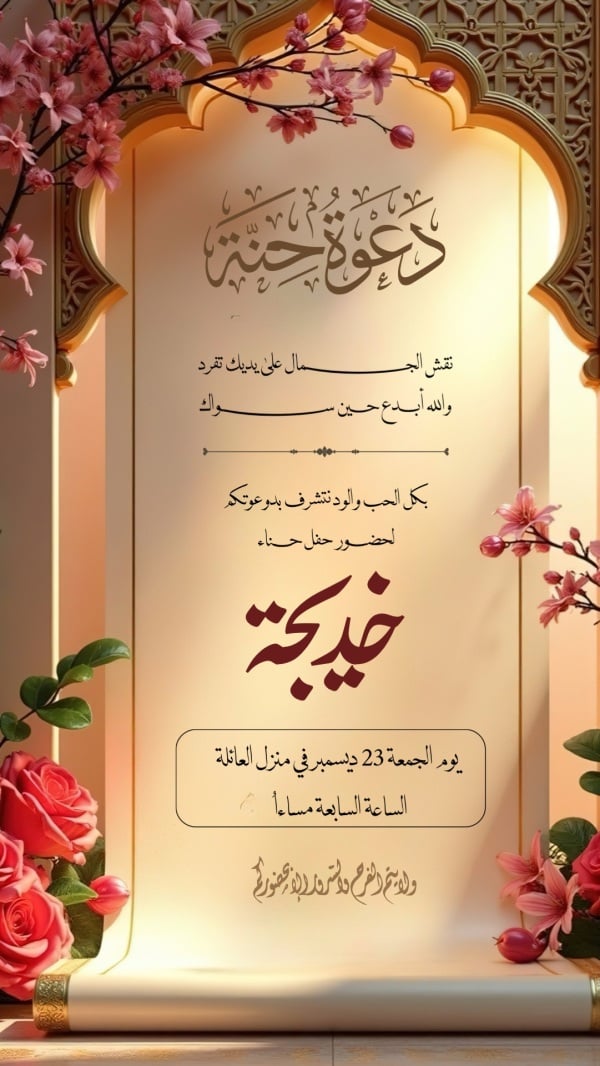 دَعْوَةُ حِنَّة
نقش الجـــــمال على يديك تفرد
والله أبدع حين ســـــواك
بكل الحب والود نتشرف بدعوتكم
لحضور حفل حناء
خديجة
يوم الجمعة 23 ديسمبر في منزل العائلة
الساعة السابعة مساءاً
ولا يتم الفرح والسرور إلا بحضوركم